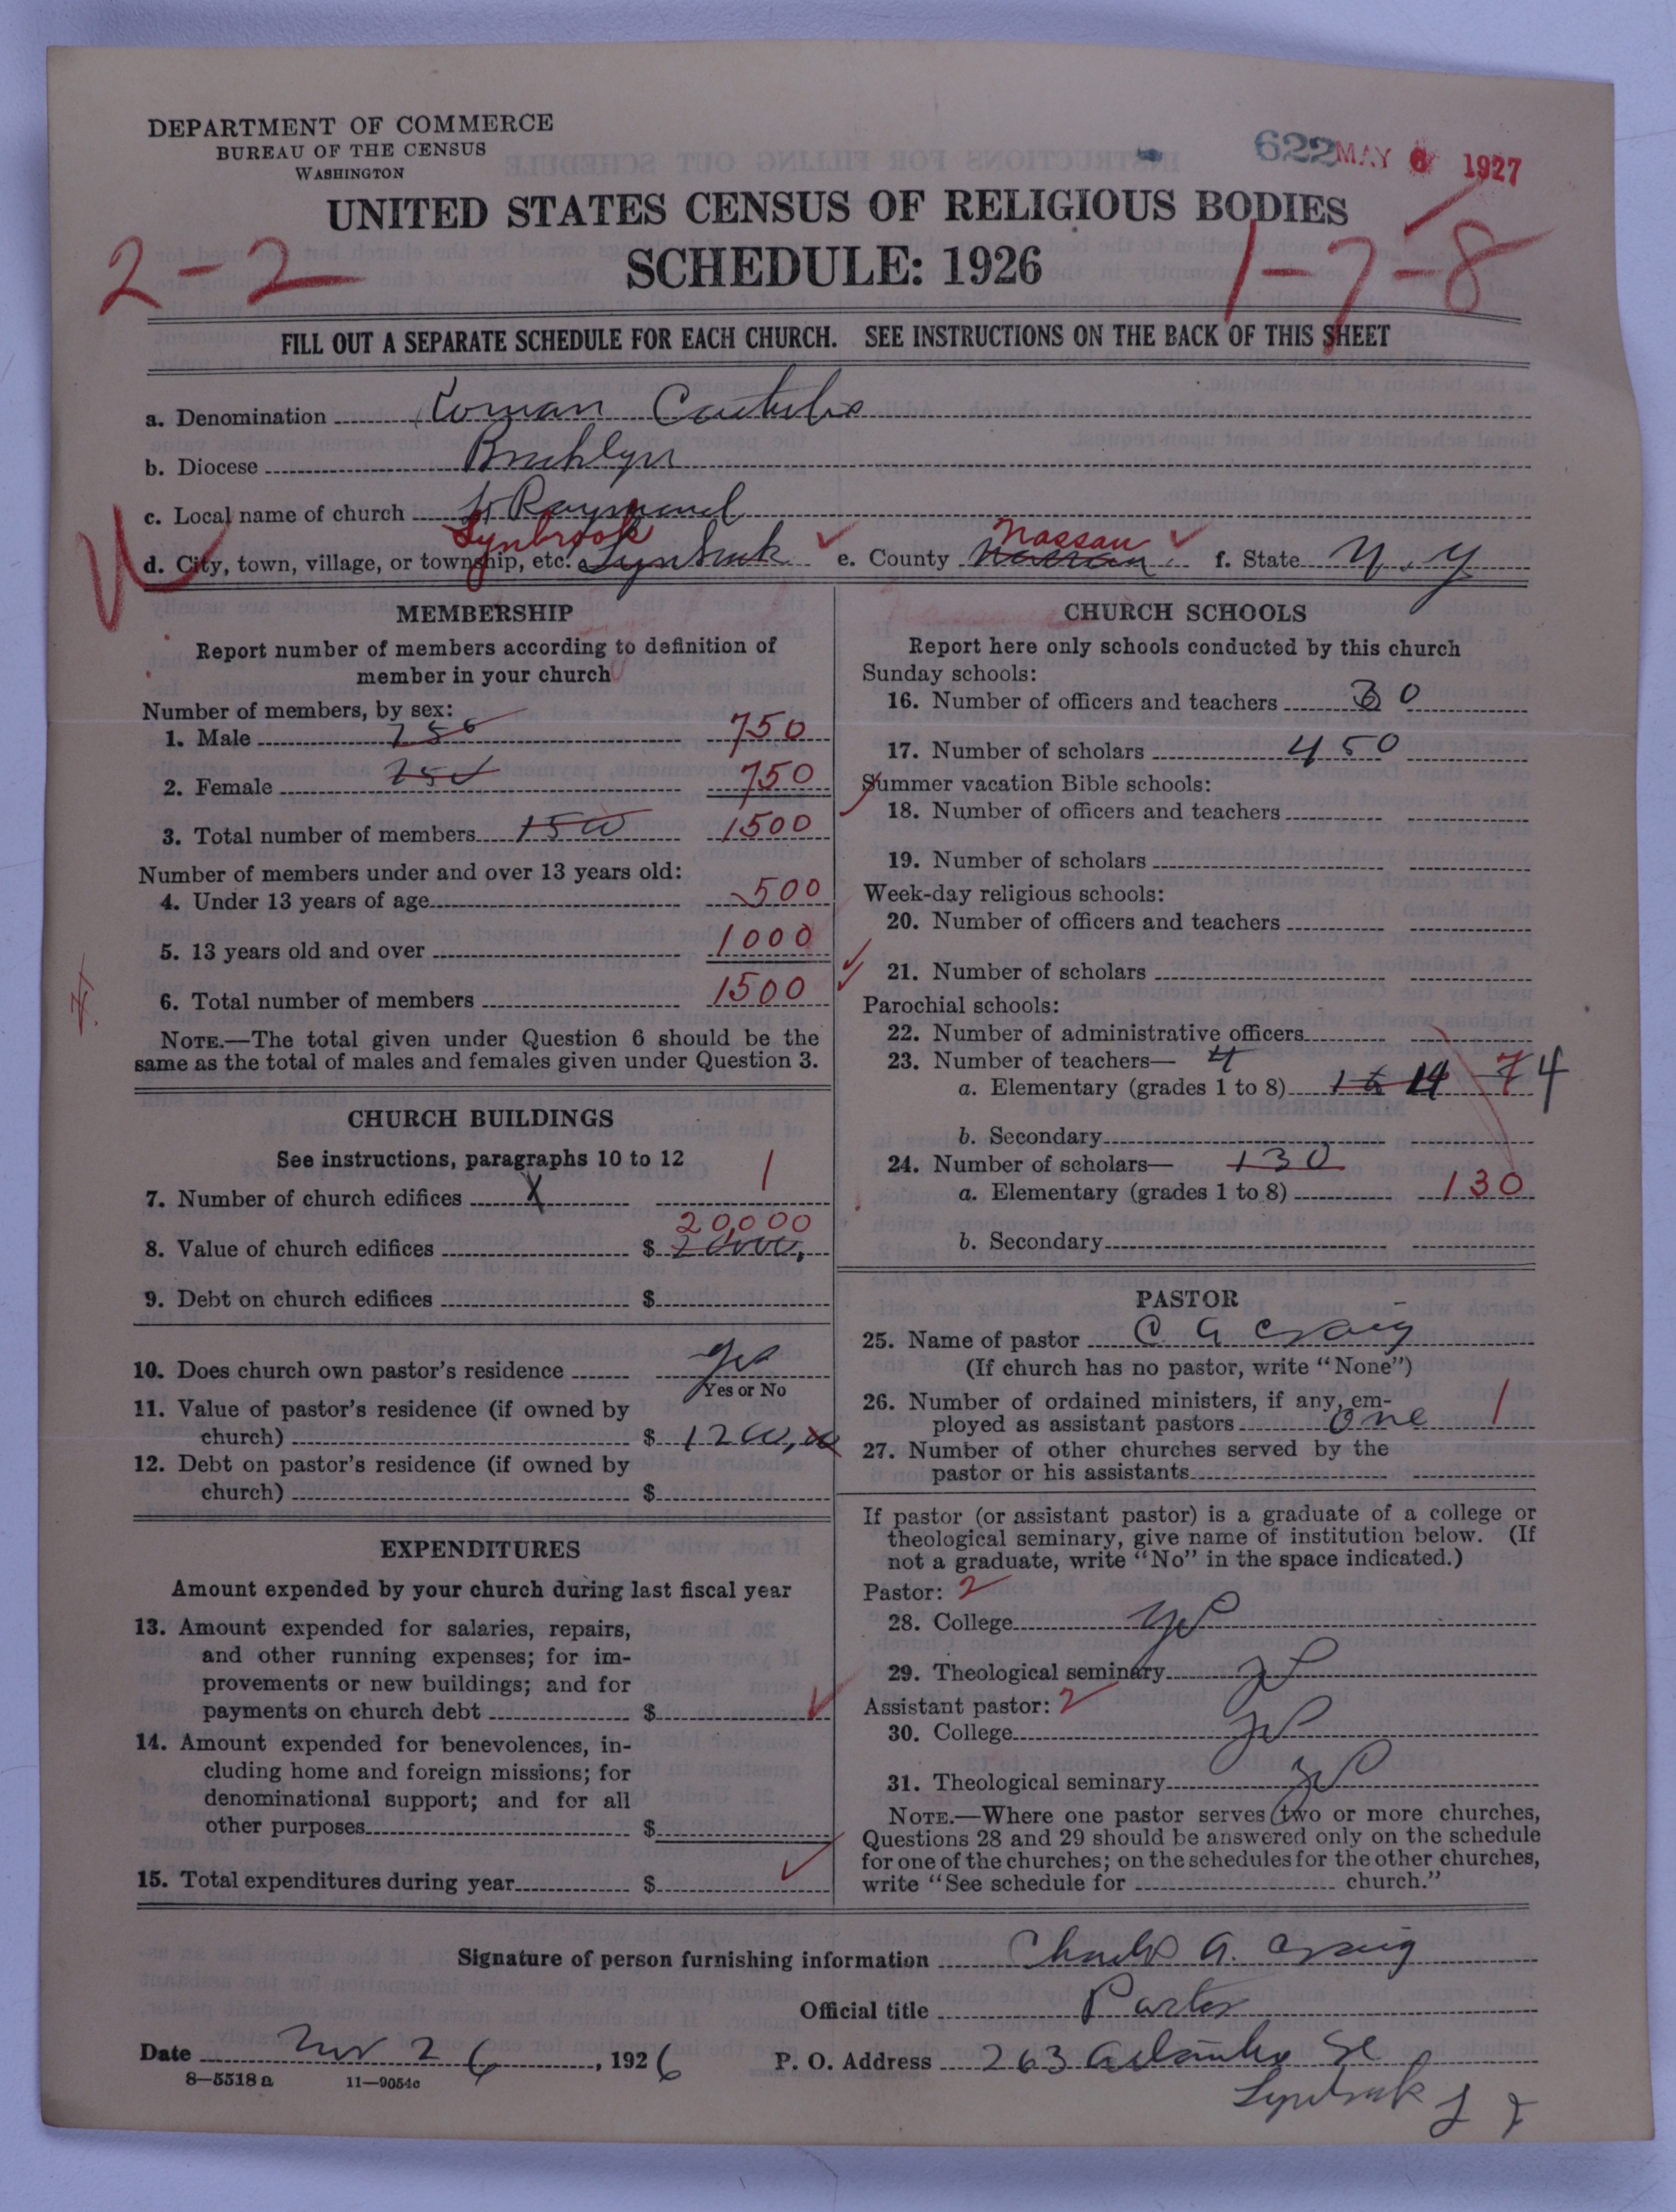 DEPARTMENT OF COMMERCE
BUREAU OF THE CENSUS
WASHINGTON
622 MAY 6 1927
UNITED STATES CENSUS OF RELIGIOUS BODIES
SCHEDULE: 1926
2-2
1-7-8
FILL OUT A SEPARATE SCHEDULE FOR EACH CHURCH. SEE INSTRUCTIONS ON THE BACK OF THIS SHEET
a. Denomination Roman Catholic
b. Diocese Brooklyn
c. Local name of church St Raymond
Lynbrook Nassau
d. City, town, village, or township, etc. Lynbrook e. County Nassau f. State N.Y
MEMBERSHIP
Report number of members according to definition of
member in your church
Number of members, by sex:
1. Male 750 750
2. Female 750 750
3. Total number of members 1500 1500
Number of members under and over 13 years old:
4. Under 13 years of age 500
5. 13 years old and over 1000
6. Total number of members 1500
NOTE.—The total given under Question 6 should be the
same as the total of males and females given under Question 3.
CHURCH BUILDINGS
See instructions, paragraphs 10 to 12
7. Number of church edifices X 1
20,000
8. Value of church edifices $ 20000,
9. Debt on church edifices $
10. Does church own pastor's residence yes
Yes or No
11. Value of pastor's residence (if owned by
church) $ 1200,00
12. Debt on pastor's residence (if owned by
church) $
EXPENDITURES
Amount expended by your church during last fiscal year
13. Amount expended for salaries, repairs,
and other running expenses; for im-
provements or new buildings; and for
payments on church debt $
14. Amount expended for benevolences, in-
cluding home and foreign missions; for
denominational support; and for all
other purposes $
15. Total expenditures during year $
CHURCH SCHOOLS
Report here only schools conducted by this church
Sunday schools:
16. Number of officers and teachers 30
17. Number of scholars 450
Summer vacation Bible schools:
18. Number of officers and teachers
19. Number of scholars
Week-day religious schools:
20. Number of officers and teachers
21. Number of scholars
Parochial schools:
22. Number of administrative officers
23. Number of teachers— 4
a. Elementary (grades 1 to 8) 14 7 4
b. Secondary
24. Number of scholars— 130
a. Elementary (grades 1 to 8) 130
b. Secondary
PASTOR
25. Name of pastor C A Craig
(If church has no pastor, write "None")
26. Number of ordained ministers, if any, em-
ployed as assistant pastors one 1
27. Number of other churches served by the
pastor or his assistants
If pastor (or assistant pastor) is a graduate of a college or
theological seminary, give name of institution below. (If
not a graduate, write "No" in the space indicated.)
Pastor: 2
28. College yes
29. Theological seminary yes
Assistant pastor: 2
30. College yes
31. Theological seminary yes
NOTE.—Where one pastor serves two or more churches,
Questions 28 and 29 should be answered only on the schedule
for one of the churches; on the schedules for the other churches,
write "See schedule for church."
Signature of person furnishing information Charles A. Craig
Official title Pastor
Date Nov 26, 1926 P. O. Address 263 Atlantic
8—5518 a 11—9054c
Lynbrook